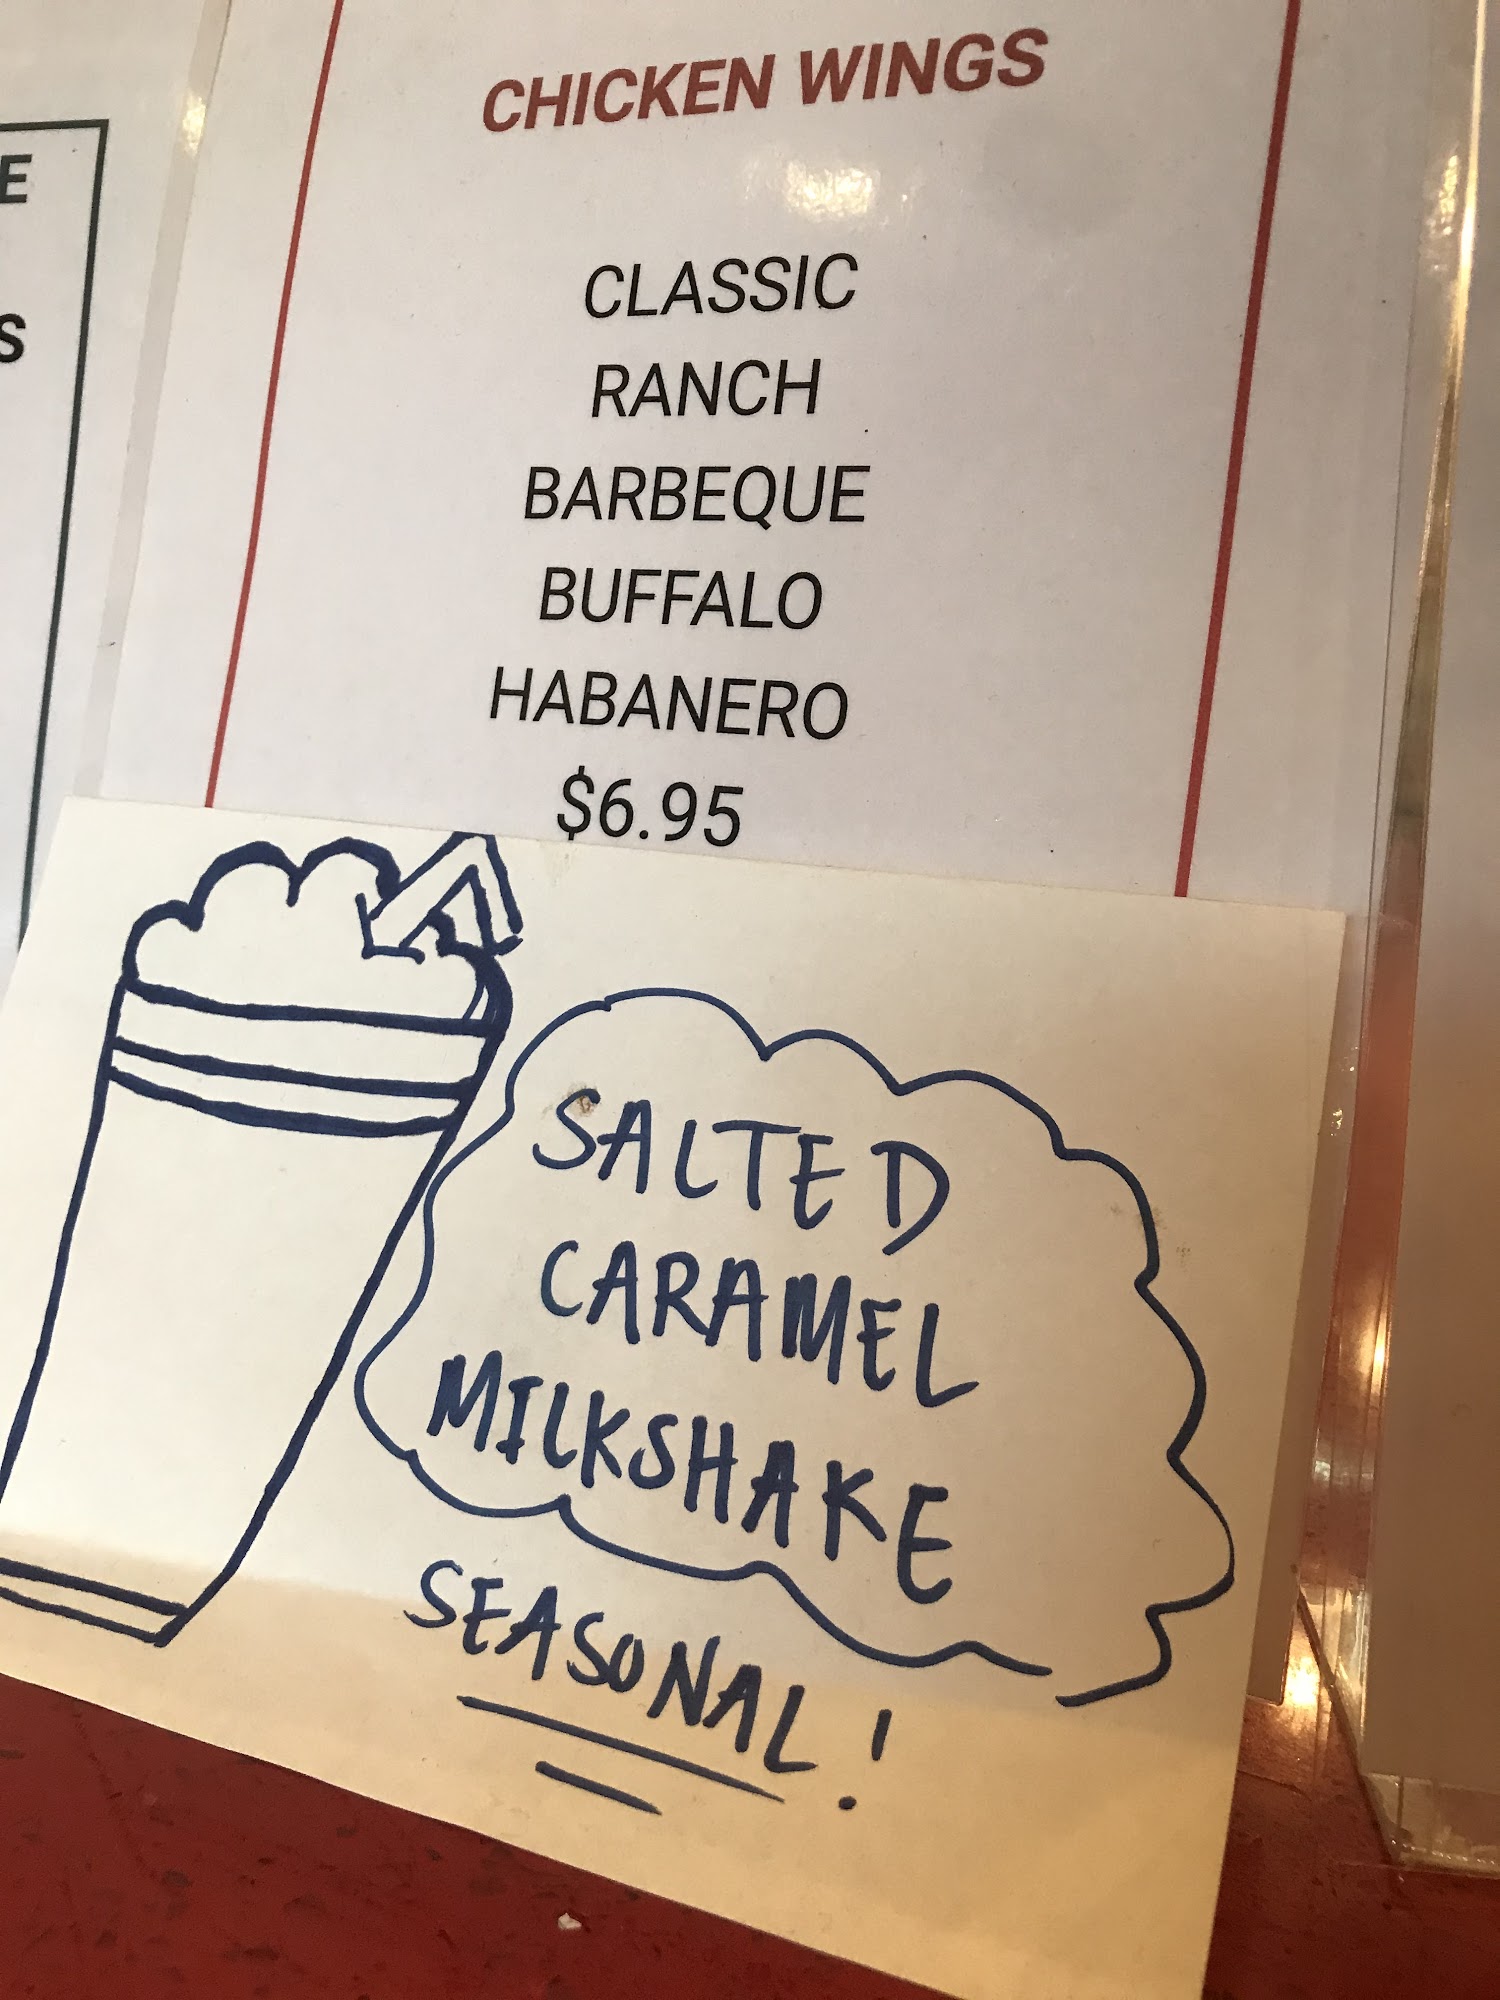 E
S
CHICKEN WINGS
CLASSIC
RANCH
BARBEQUE
BUFFALO
HABANERO
$6.95
SALTED
CARAMEL
MILKSHAKE
SEASONAL!